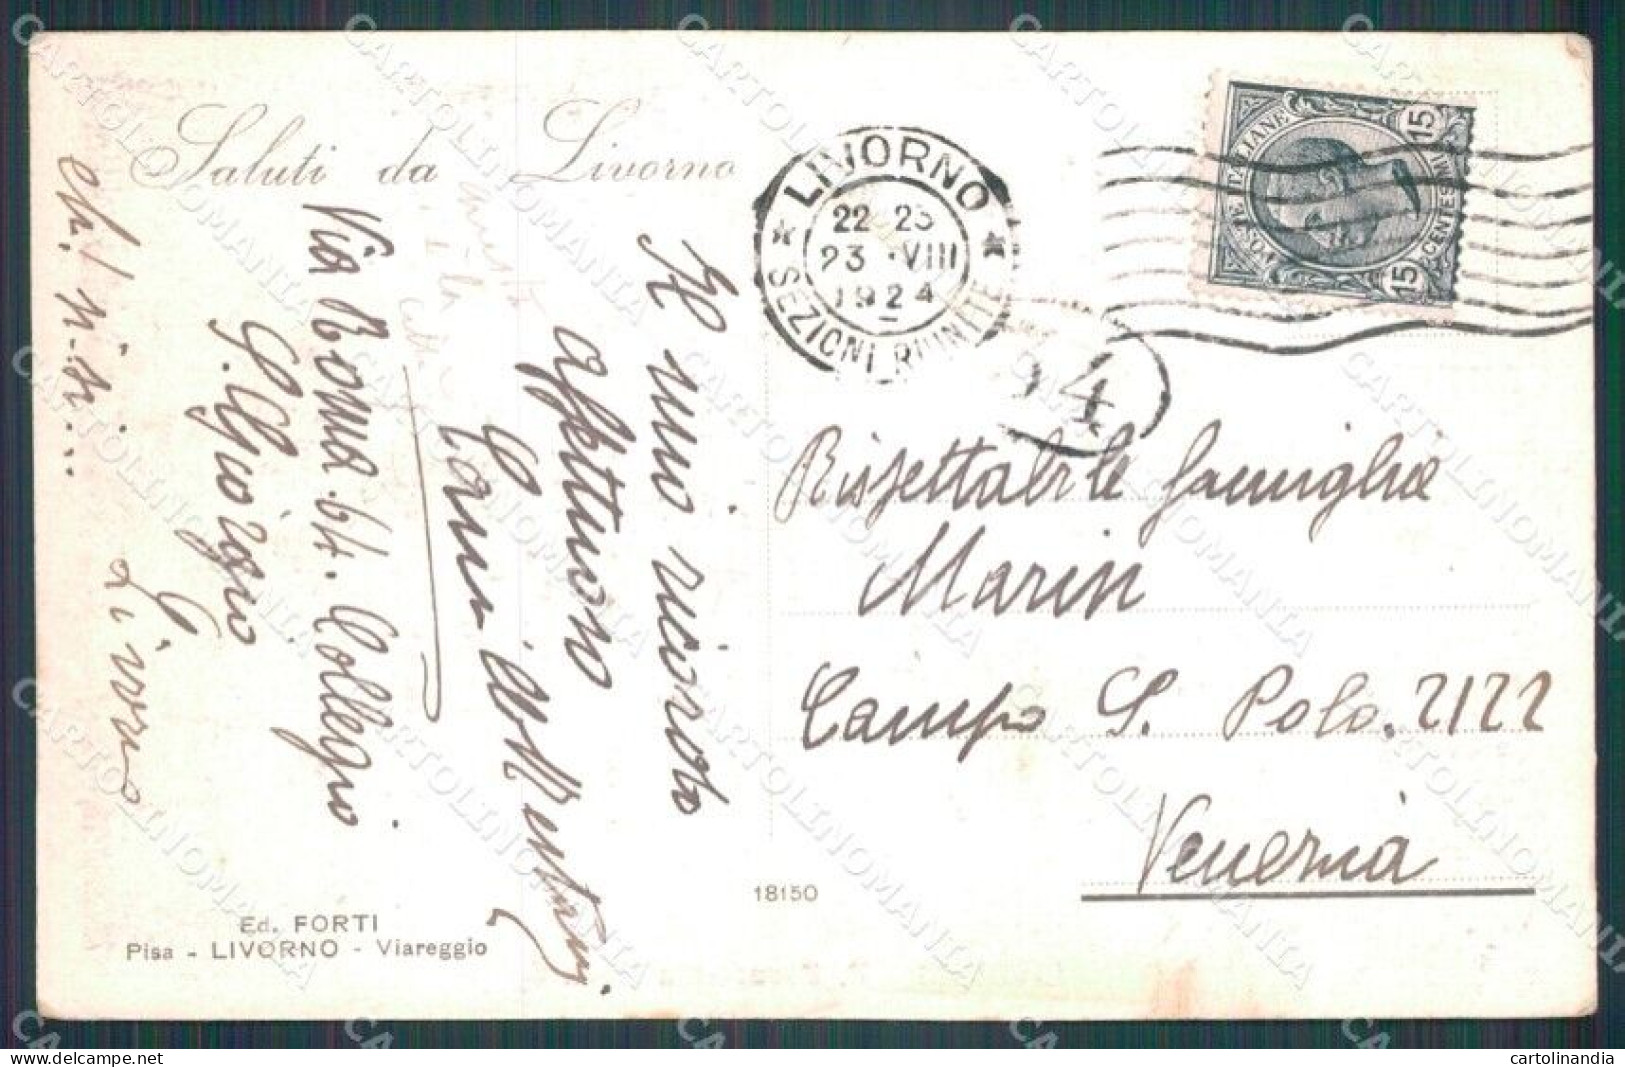 Saluti da Livorno
LIVORNO
22-23
23 · VIII
1924
SEZIONI RIUNITE
POSTE ITALIANE
15 CENTESIMI 15
14
Rispettabile famiglia
Marin
Campo S. Polo. 2122
Venezia
Il mio ricordo
affettuoso
Via Roma 64. Collegio
S. Giorgio
Livorno
18150
Ed. FORTI
Pisa - LIVORNO - Viareggio
CARTOLINOMANIA
cartolinandia